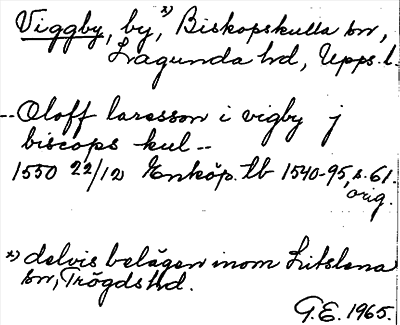 Viggby, by, x) Biskopskulla sn,
Lagunda hd, Upps. l.
-- Oloff larsson i vigby j
biscops kul --
1550 22/12 Enköp. tb 1540-95, s. 61.
orig.
x) delvis belägen inom Litslena
sn, Trögds hd.
G.E. 1965.